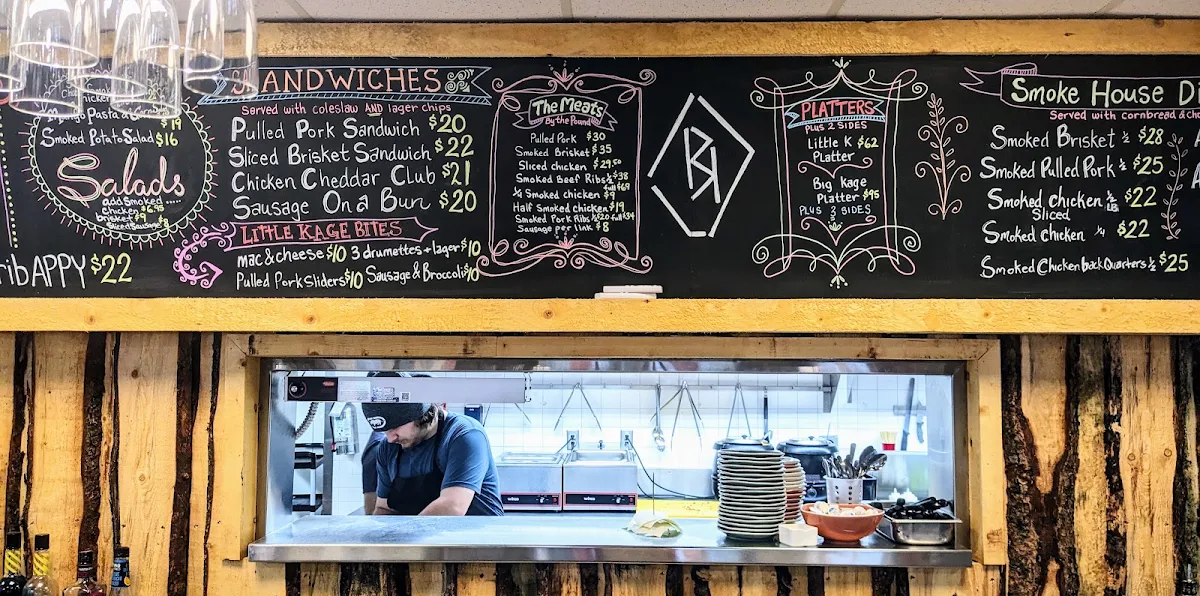 chicken
Pasta
$19
Smoked Potato Salad $16
Salads
add smoked .....
chicken $6.95
brisket $9
Sliced Sausage $
rib APPY $22
SANDWICHES
Served with coleslaw AND lager chips
Pulled Pork Sandwich $20
Sliced Brisket Sandwich $22
Chicken Cheddar Club $21
Sausage On a Bun $20
LITTLE KAGE BITES
mac & cheese $10 3 drumettes + lager $10
Pulled Pork Sliders $10 Sausage & Broccoli $10
The Meats
By the Pound
Pulled Pork $30
Smoked Brisket $35
Sliced chicken $29.50
Smoked Beef Ribs ½ $38
full $69
¼ Smoked chicken $9
Half Smoked chicken $19
Smoked Pork Ribs ½ $20 full $34
Sausage per link $8
PLATTERS
PLUS 2 SIDES
Little K $62
Platter
Big Kage
Platter $95
PLUS 3 SIDES
Smoke House Di
Served with cornbread & cho
Smoked Brisket ½ $28
Smoked Pulled Pork ½ $25
Smoked Chicken ½ LB $22
Sliced
Smoked Chicken ¼ $22
Smoked Chicken back Quarters ½ $25